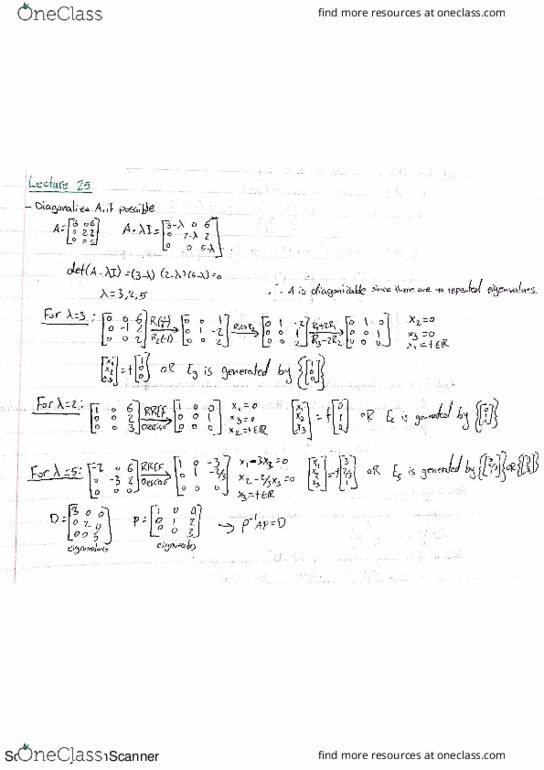 OneClass find more resources at oneclass.com
Lecture 25
- Diagonalize A, if possible
A = [3 0 6; 0 2 2; 0 0 5] A - λI = [3-λ 0 6; 0 2-λ 2; 0 0 5-λ]
det(A - λI) = (3-λ)(2-λ)(5-λ) = 0
λ = 3, 2, 5 ∴ A is diagonizable since there are no repeated eigenvalues.
For λ=3: [0 0 6; 0 -1 2; 0 0 2] → [0 0 1; 0 1 -2; 0 0 2] → [0 1 -2; 0 0 1; 0 0 2] R3-2R2 → [0 1 0; 0 0 1; 0 0 0] x2=0 x3=0 x1=t∈R
[x1; x2; x3] = t[1; 0; 0] OR E3 is generated by {[1; 0; 0]}
For λ=2: [1 0 6; 0 0 2; 0 0 3] RREF exercise → [1 0 0; 0 0 1; 0 0 0] x1=0 x3=0 x2=t∈R [x1; x2; x3] = t[0; 1; 0] OR E2 is generated by {[0; 1; 0]}
For λ=5: [-2 0 6; 0 -3 2; 0 0 0] RREF → [1 0 -3; 0 1 -2/3; 0 0 0] x1-3x3=0 x2-2/3x3=0 x3=t∈R [x1; x2; x3] = t[3; 2/3; 1] OR E5 is generated by
D = [3 0 0; 0 2 0; 0 0 5] P = → P⁻¹AP = D
eigenvalues
OneClass Scanner find more resources at oneclass.com